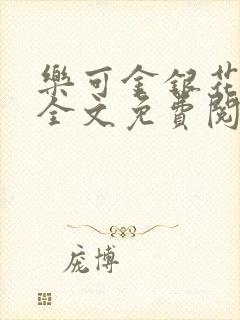 樂可金銀花
全文免費閱
庞博